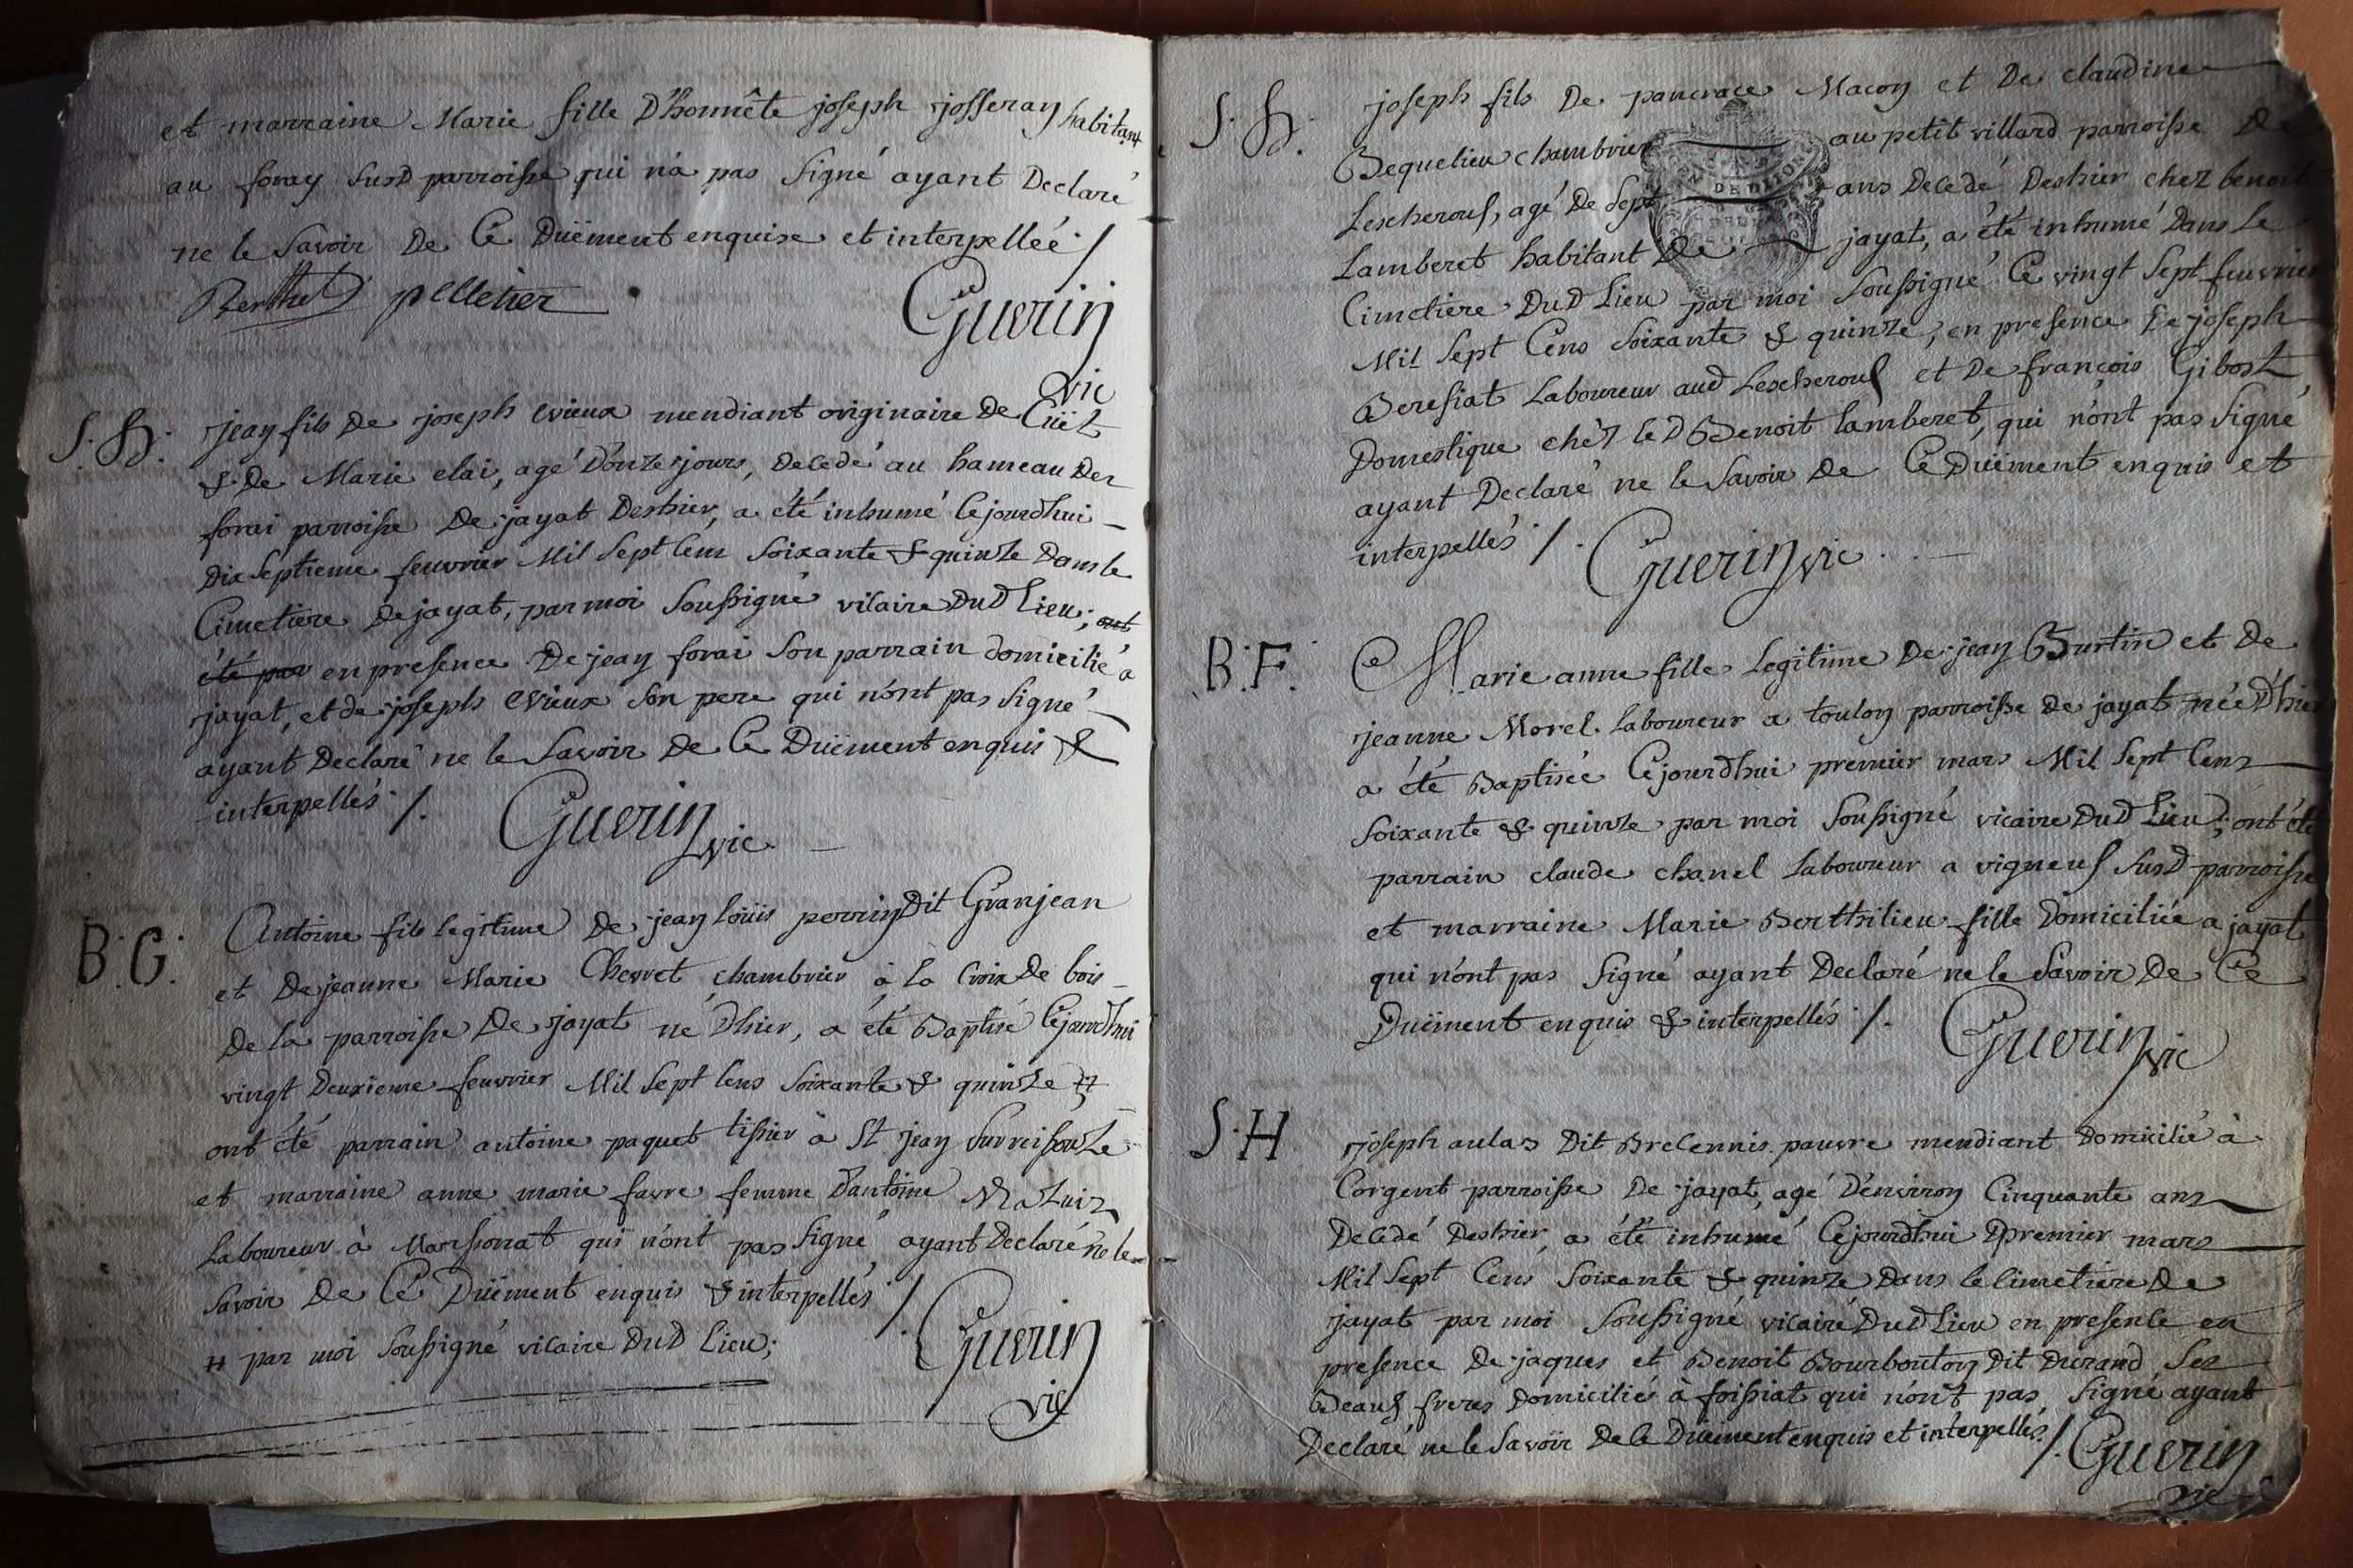 et marraine Marie fille D'honnête joseph josseray habitant
au foray susd parroisse qui n'a pas signé ayant Declaré
ne le savoir De Ce Düement enquise et interpellée /
Berthet pelletier
Guerin
vic
S. H. jean fils De joseph vieux mendiant originaire De Cuët
& De Marie clai, agé D'onze jours, Decedé au hameau Des
forai parroisse De jayat Deshier, a été inhumé Cejourdhui
Dix septieme feuvrier Mil sept Cens soixante & quinze Dans le
Cimetiere De jayat, par moi soussigné vicaire DuD Lieu; ont
été par en presence De jean forai son parrain domicilié a
jayat, et de joseph vieux son pere qui n'ont pas signé
ayant Declaré ne le savoir De Ce Düement enquis &
interpellés /.
Guerin vic.
B. G. Antoine fils legitime De jean Loüis perrin Dit Granjean
et De jeanne Marie Chevret chambrier à la Croix De bois
De la parroisse De jayat né D'hier, a été Baptisé Cejourdhui
vingt Deuxieme feuvrier Mil sept Cens soixante & quinze #
ont été parrain antoine paquet tissier à St jean sur reissouze
et marraine anne marie favre femme D'antoine
Laboureur à Marsonat qui n'ont pas signé ayant Declaré ne le
savoir De Ce Düement enquis & interpellés /
# par moi soussigné vicaire DuD Lieu;
Guerin
vic
S. H. joseph fils De pancrace Macon et De claudine
Bequelieu chambrier au petit villard parroisse De
Lescheroux, agé De sept ans Decedé Deshier chez benoit
Lamberet habitant De jayat, a été inhumé Dans le
Cimetiere DuD Lieu par moi soussigné Ce vingt sept feuvrier
Mil sept Cens soixante & quinze, en presence De joseph
Beresiat Laboureur aud Lescheroux et De françois Gibost
Domestique chéz led Benoit lamberet, qui n'ont pas signé
ayant Declaré ne le savoir De Ce Düement enquis et
interpellés /.
Guerin vic.
B. F. Marie anne fille Legitime De jean Burtin et De
jeanne Morel Laboureur a toulon parroisse De jayat née D'hier
a été Baptisée Cejourdhui premier mars Mil sept Cens
soixante & quinze par moi soussigné vicaire DuD Lieu; ont été
parrain claude chanel Laboureur a vigneux susd parroisse
et marraine Marie Berthilieu fille Domiciliée a jayat
qui n'ont pas signé ayant Declaré ne le savoir De Ce
Düement enquis & interpellés /.
Guerin vic
S. H joseph aulas Dit Brelennis pauvre mendiant Domicilié à
Corgent parroisse De jayat, agé D'environ Cinquante ans
Decedé Deshier, a été inhumé Cejourdhui premier mars
Mil sept Cens soixante & quinze Dans le Cimetiere De
jayat par moi soussigné vicaire DuD Lieu en presence en
presence De jaques et Benoit Bourbouton Dit Durand ses
Beaux freres Domiciliés à foissiat qui n'ont pas signé ayant
Declaré ne le savoir De Ce Düement enquis et interpellés /.
Guerin
vic